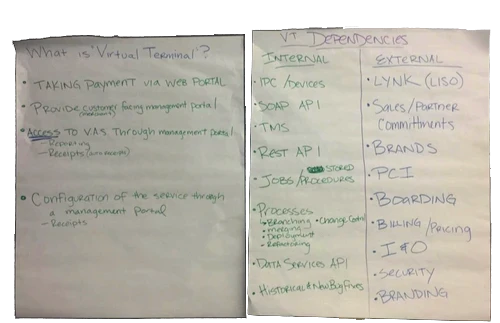 What is 'Virtual Terminal'?
• TAKING PAYMENT VIA WEB PORTAL
• PROVIDE customer facing management portal
(merchant)
• Access TO VAS Through management portal
- Reporting
- Receipts
• Configuration of the service through
a management portal
- Receipts
VT DEPENDENCIES
INTERNAL
• IPC / Devices
• SOAP API
• TMS
• REST API
• JOBS / STORED
PROCEDURES
• Processes
- Branching • Change Control
- merging
- Deployment
- Refactoring
• DATA SERVICES API
• Historical & New Bug Fixes
EXTERNAL
• LYNK (LISO)
• Sales/Partner
Commitments
• BRANDS
• PCI
• BOARDING
• BILLING / Pricing
• I & O
• SECURITY
• BRANDING